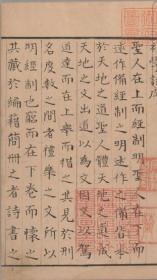 聖人在上而經制明聖人在下而
述作備經制之明述作之備皆本
於天地之道聖人體天地之道成
天地之文出道以為文因文以駕
道達而在上舉而措之其見於刑
名度數之間者禮樂之文所以
明經制也窮而在下卷而懷之
其藏於編籍簡冊之者詩書之